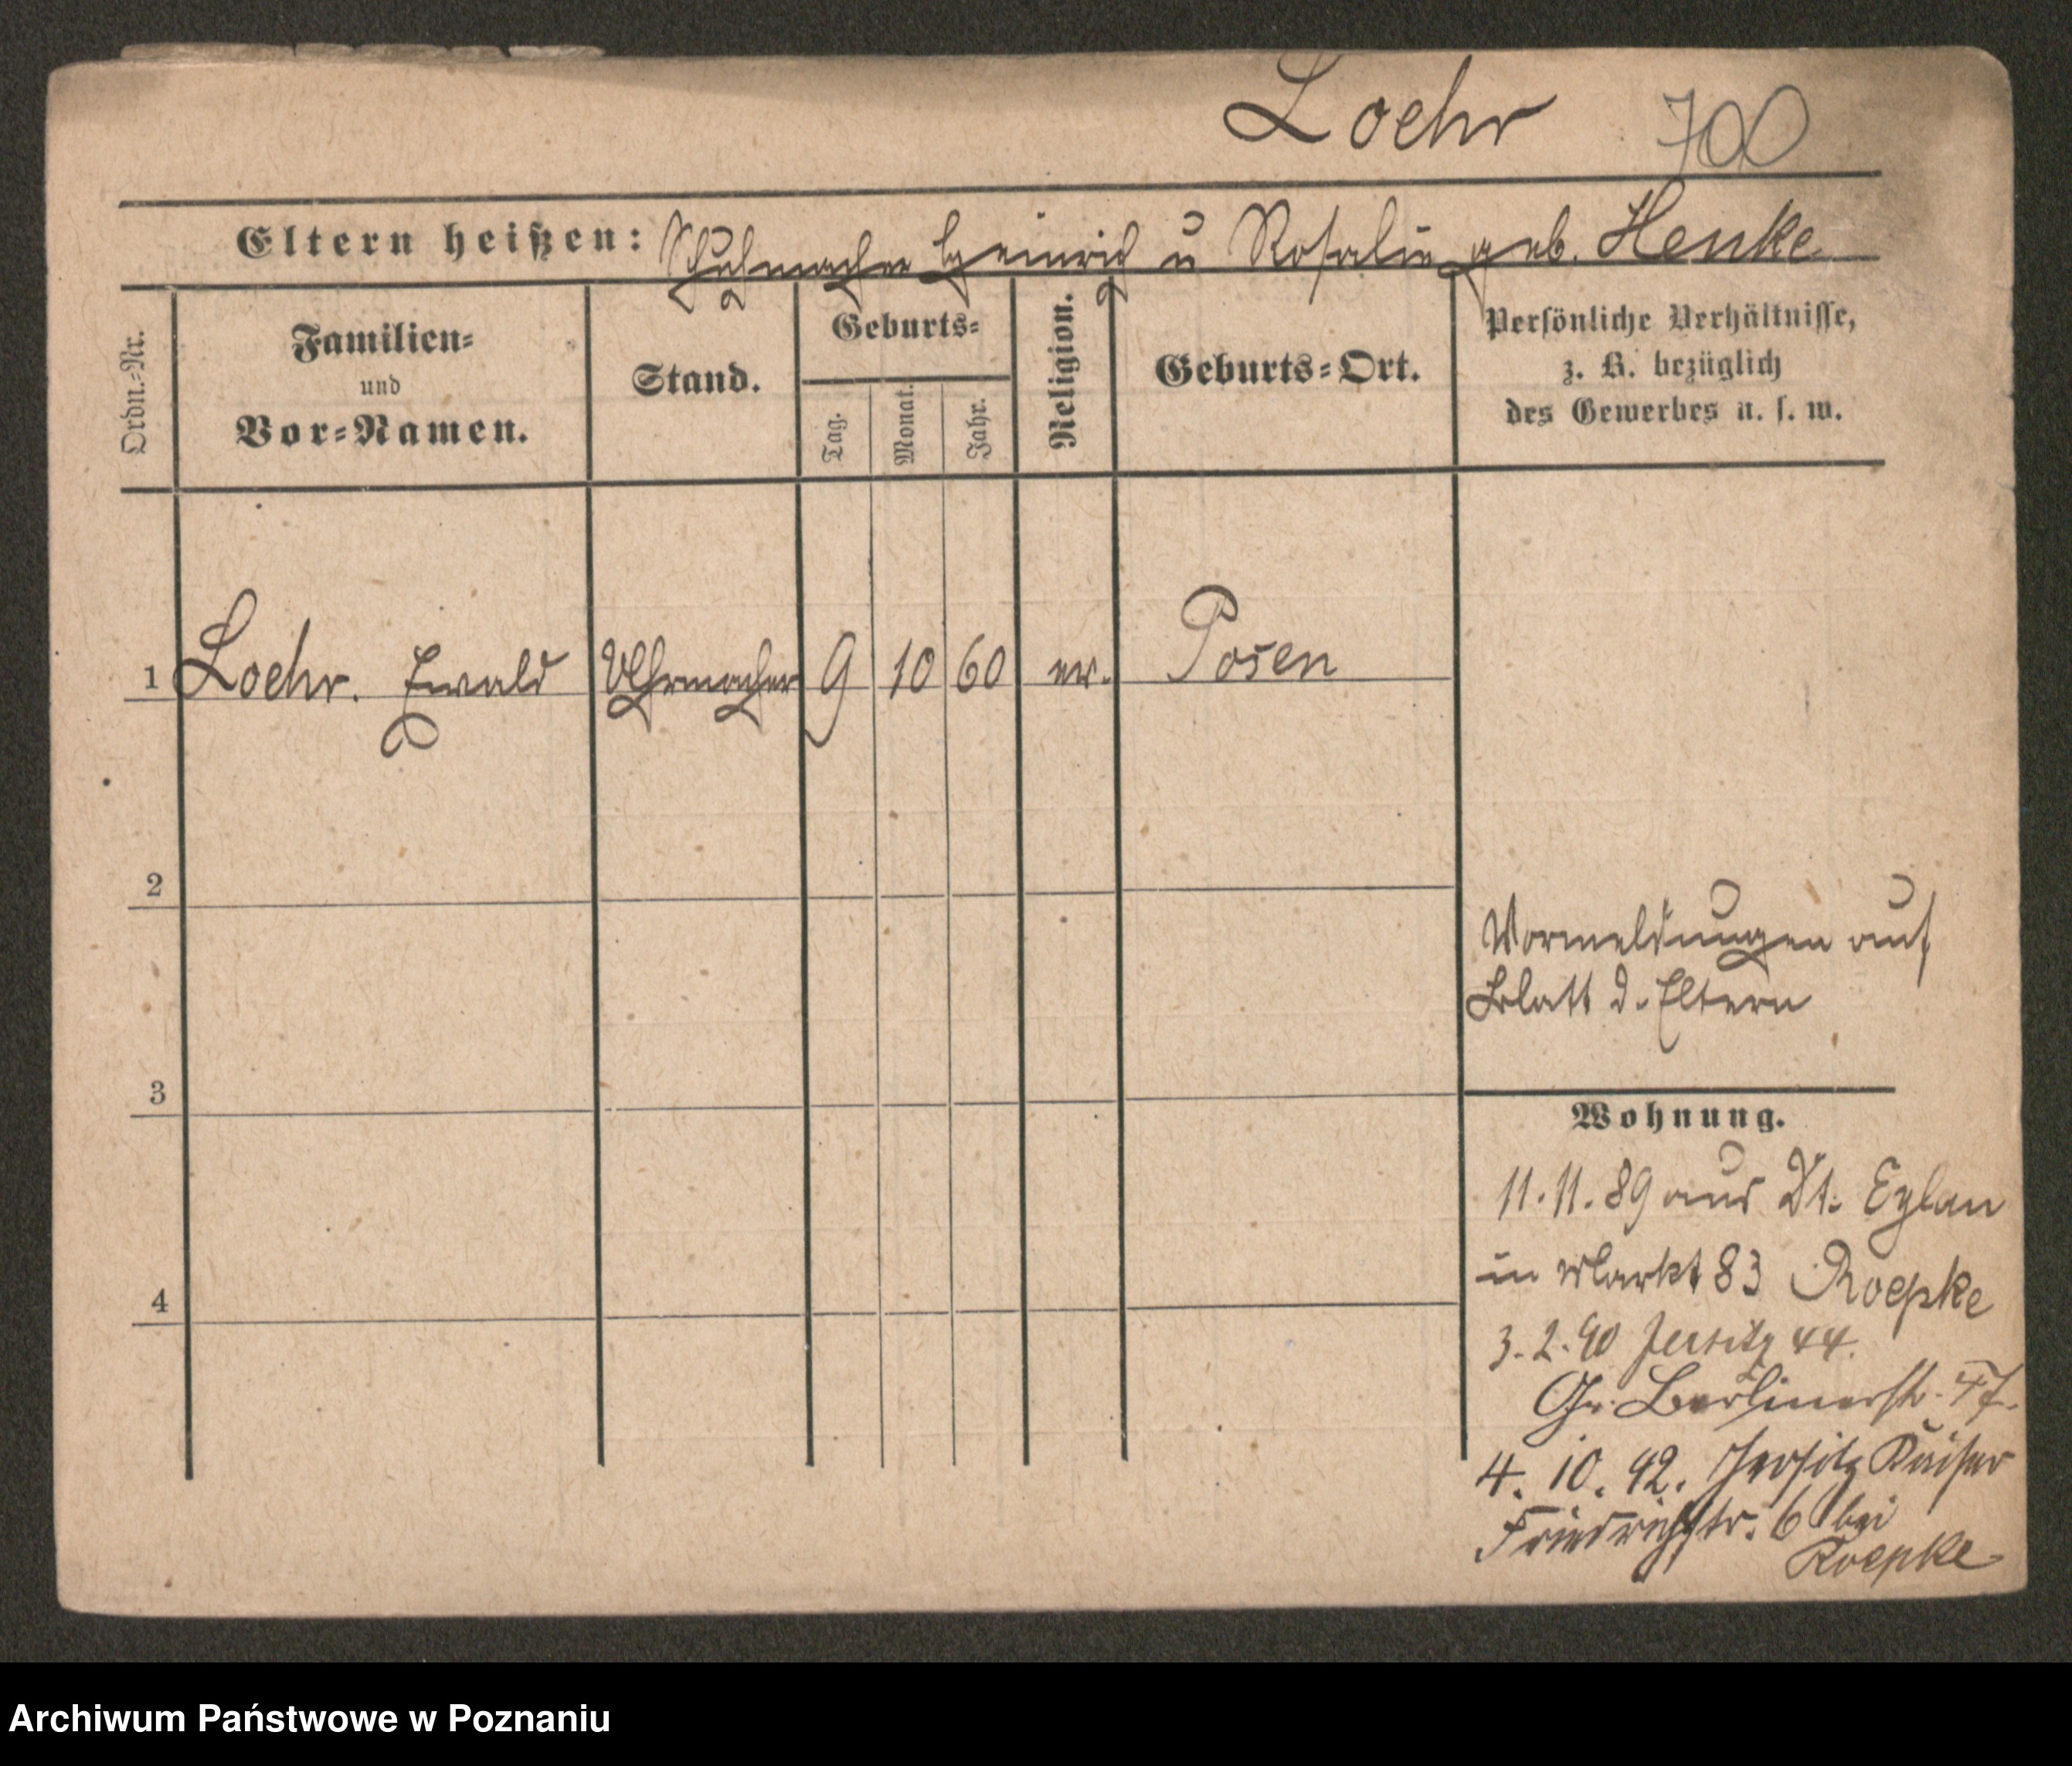 Loehr 700
Eltern heißen: Schuhmacher Heinrich u Rosalie geb. Henke
Ordn.=Nr.
Familien=
und
Vor=Namen.
Stand.
Geburts=
Tag.
Monat.
Jahr.
Religion.
Geburts=Ort.
Persönliche Verhältnisse,
z. B. bezüglich
des Gewerbes u. s. w.
1 Loehr. Ewald Uhrmacher 9 10 60 ev. Posen
2
Vormeldungen auf
Blatt d. Eltern
3
Wohnung.
11.11.89 aus Dt. Eylau
in Markt 83 Roepke
4
3.2.90 Jersitz 44.
Gr. Berlinerstr. 47.
4. 10. 92. Jersitz Kaiser
Friedrichstr. 6 bei
Roepke
Archiwum Państwowe w Poznaniu